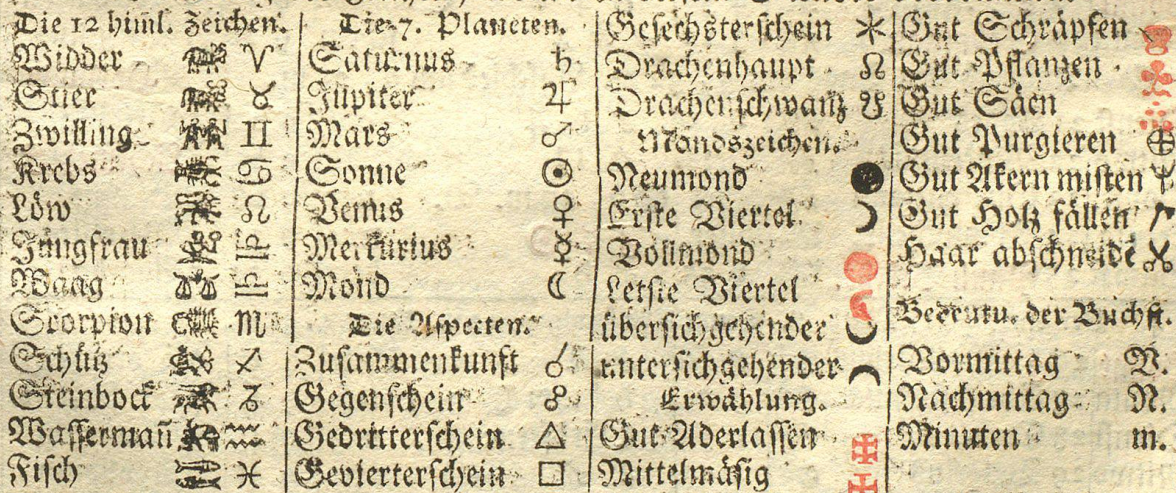 Die 12 himl. Zeichen.
Widder ♈
Stier ♉
Zwilling ♊
Krebs ♋
Löw ♌
Jungfrau
Waag
Scorpion ♏
Schütz ♐
Steinbock ♑
Wasserman̄ ♒
Fisch ♓
Die 7. Planeten.
Saturnus ♄
Jupiter ♃
Mars ♂
Sonne ☉
Venus ♀
Merkurius ☿
Mond ☾
Die Aspecten.
Zusammenkunft ☌
Gegenschein ☍
Gedritterschein △
Gevierterschein □
Gesechsterschein ⚹
Drachenhaupt ☊
Drachenschwanz ☋
Mondszeichen.
Neumond
Erste Viertel
Vollmond
Letste Viertel
übersichgehender
untersichgehender
Erwählung.
Gut Aderlassen
Mittelmäsig
Gut Schräpfen
Gut Pflanzen
Gut Säen
Gut Purgieren
Gut Akern misten
Gut Holz fällen
Haar abschneidē
Bedeutu. der Buchst.
Vormittag V.
Nachmittag N.
Minuten m.